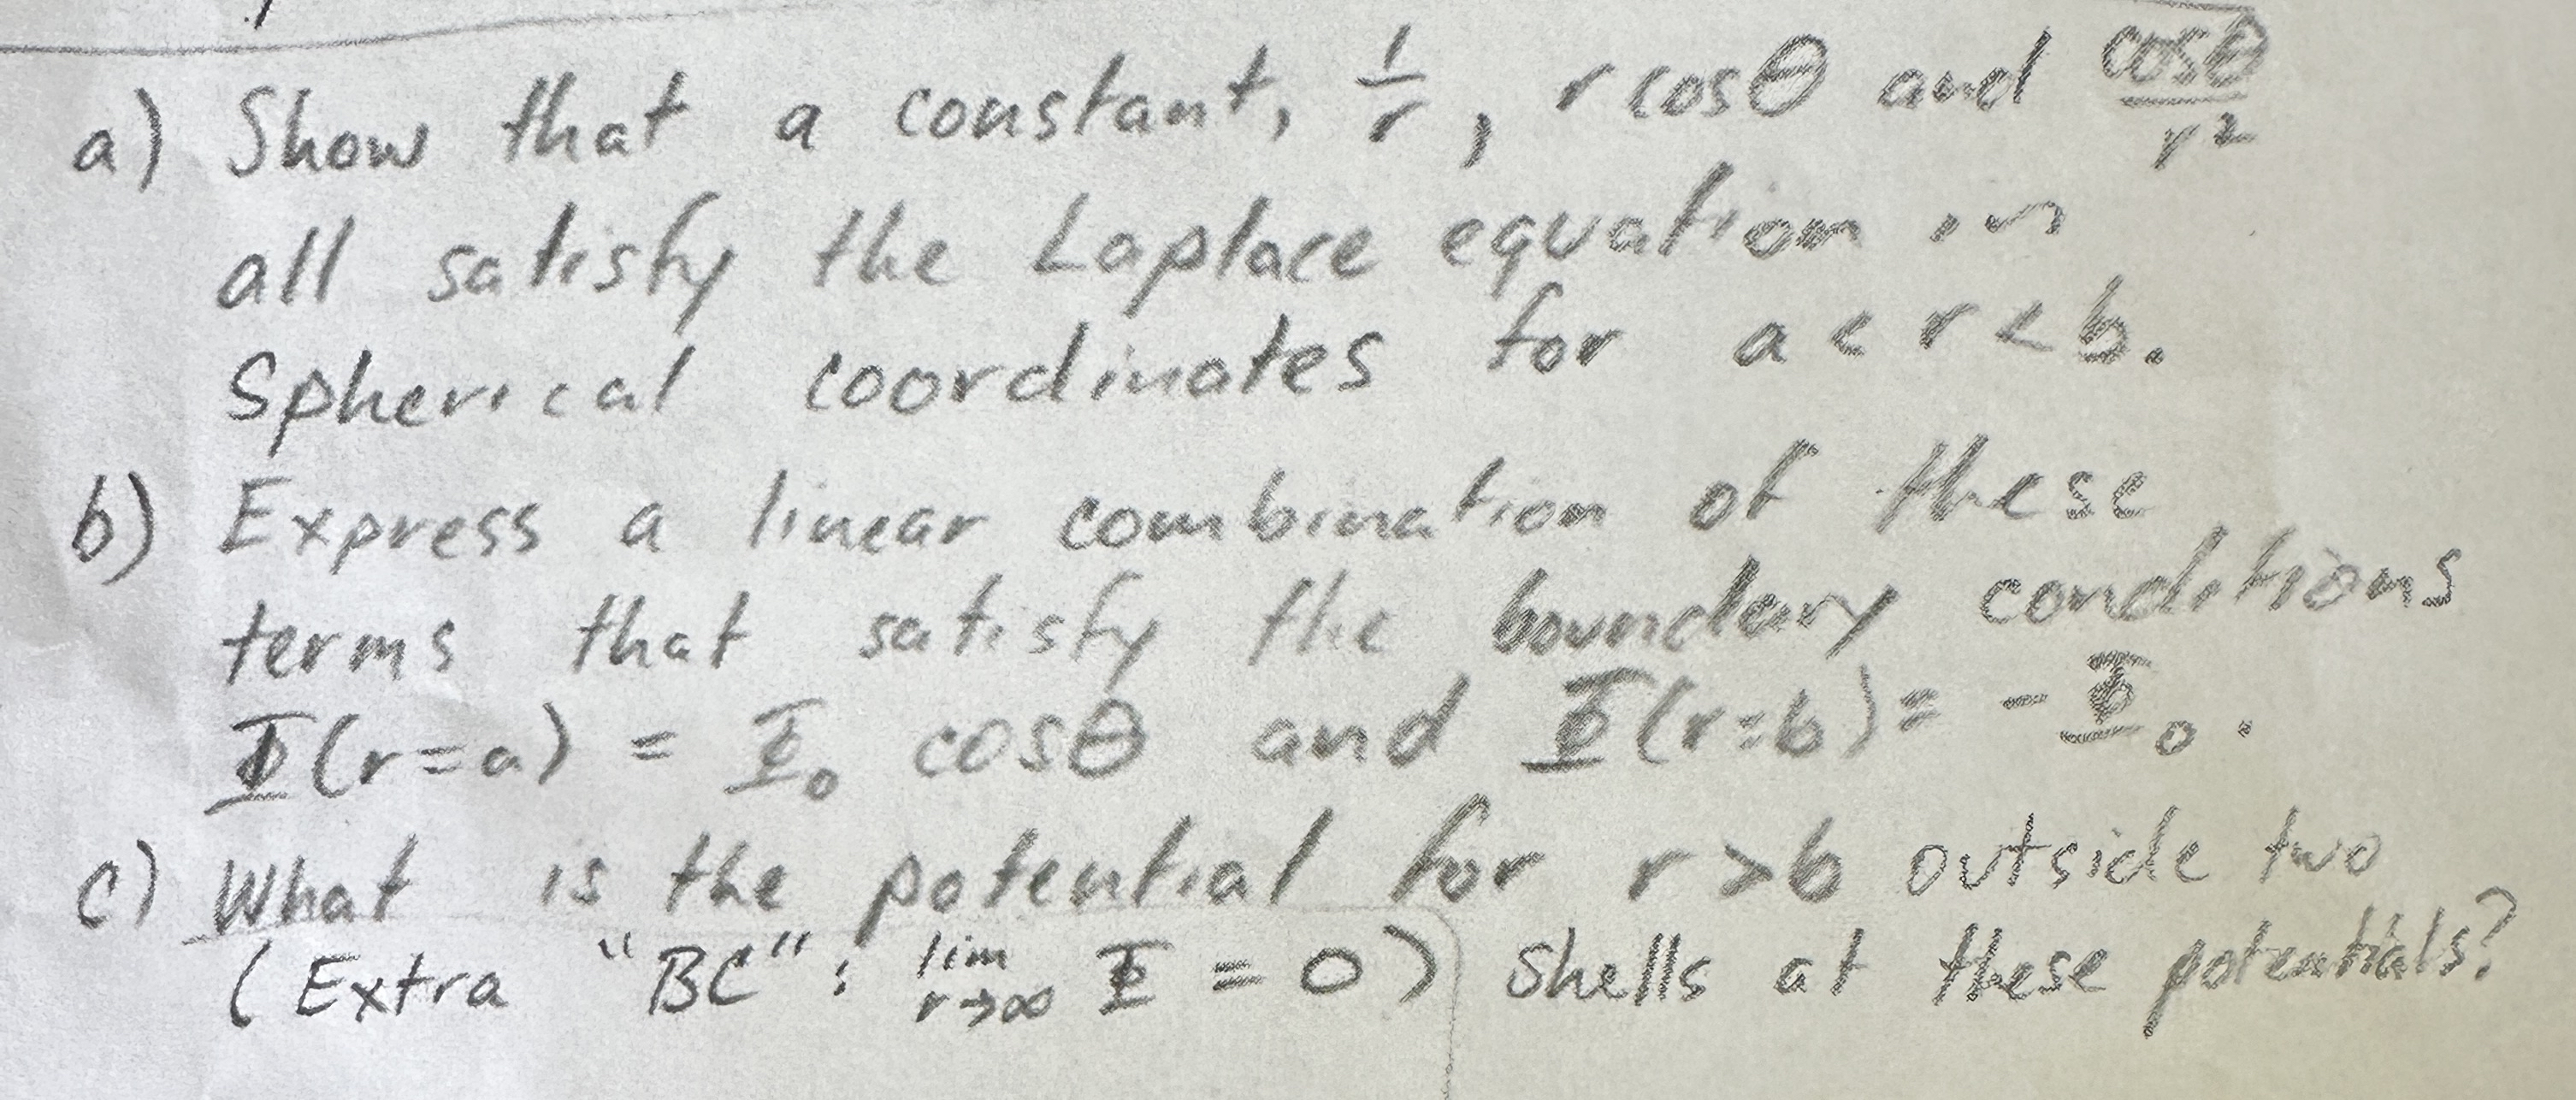 a) Show that a constant, 1/r, r cosθ and cosθ/r²
all satisfy the Laplace equation in
Spherical coordinates for a < r < b.
b) Express a linear combination of these
terms that satisfy the boundary conditions
Φ(r=a) = Φ₀ cosθ and Φ(r=b) = -Φ₀.
c) What is the potential for r > b outside two
(Extra "BC": lim r→∞ Φ = 0) shells at these potentials?